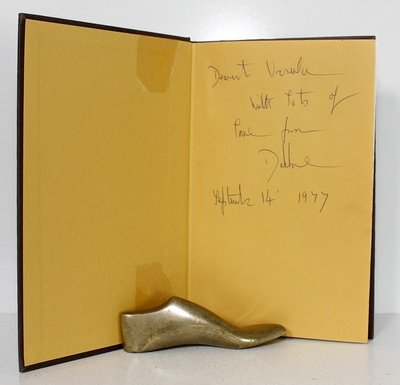 Dearest Ursula
with lots of
love from
Daphne
September 14 1977